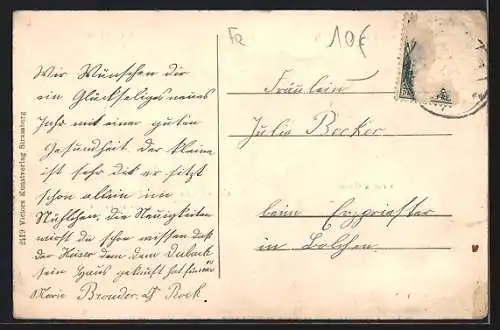 2419 Victors Kunstverlag Strassburg
Fr
10€
Wir Wünschen dir
ein Glückseliges neues
Jahr mit einer guten
Gesundheit. Der kleine
ist sehr dick er sitzt
schon allein im
Stühlchen, die Neuigkeiten
wirst du schon wissen daß
der Kaiser dem dem Duback
sein Haus gekauft hat für
Marie Bronder. Rock.
Fräulein
Julie Becker
beim Erzpriester
in Bolchen.